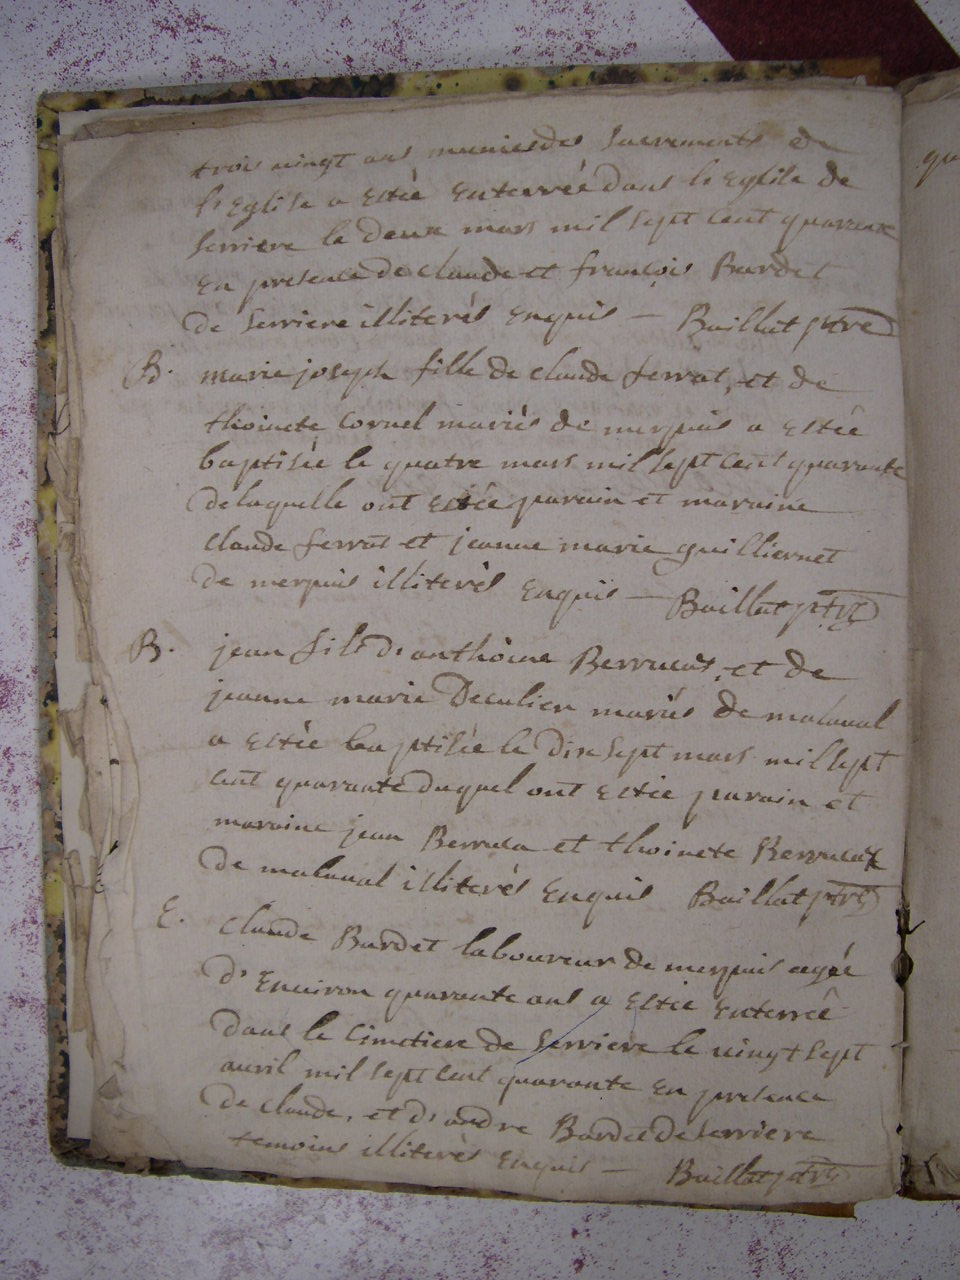 trois vingt ans munie des sacrements de
l'Eglise a Estée Enterrée dans l'Eglise de
serriere le deux mars mil sept cent quarante
En presence de claude et françois Bardet
de serriere illiterés Enquis — Baillat ptre
B. marie joseph fille de claude ferrat, et de
thoinete Cornel mariés de merpuis a Estée
baptisée le quatre mars mil sept cent quarante
de laquelle ont Estée parain et maraine
claude ferrat et jeanne marie guilliermet
de merpuis illiterés Enquis — Baillat ptre
B. jean fils d'anthoine Berrucat, et de
jeanne marie Decului mariés de malaval
a Estée baptisée le dix sept mars mil sept
cent quarante duquel ont Estée parain et
maraine jean Berruca et thoinete Berrucat
de malaval illiterés Enquis Baillat ptre
E. claude Bardet laboureur de merpuis agée
d'Environ quarante ans a Estée Enterrée
dans le Cimetiere de serriere le vingt sept
avril mil sept cent quarante En presence
de claude, et d'andre Bardet de serriere
temoins illiterés Enquis — Baillat ptre